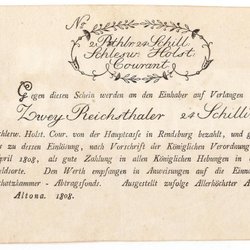 No
2 Rthlr 24 Schill.
Schlesw: Holst:
Courant
Gegen diesen Schein werden an den Einhaber auf Verlangen
Zwey Reichsthaler 24 Schilli
hlesw. Holst. Cour. von der Hauptcasse in Rendsburg bezahlt, und g
s zu dessen Einlösung, nach Vorschrift der Königlichen Verordnung
pril 1808, als gute Zahlung in allen Königlichen Hebungen in
ldeten. Den Werth empfangen in Anweisungen auf die Einn
chatzkammer-Abtragsfonds. Ausgestellt zufolge Allerhöchster A
Altona. 1808.